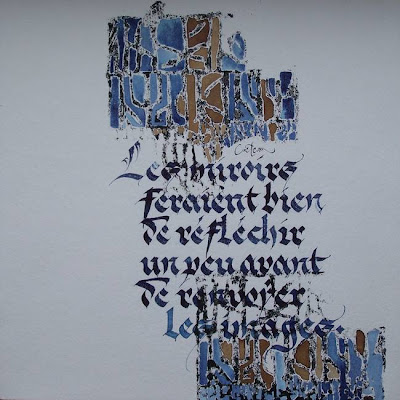 Les miroirs
feraient bien
de réfléchir
un peu avant
de renvoyer
les images.